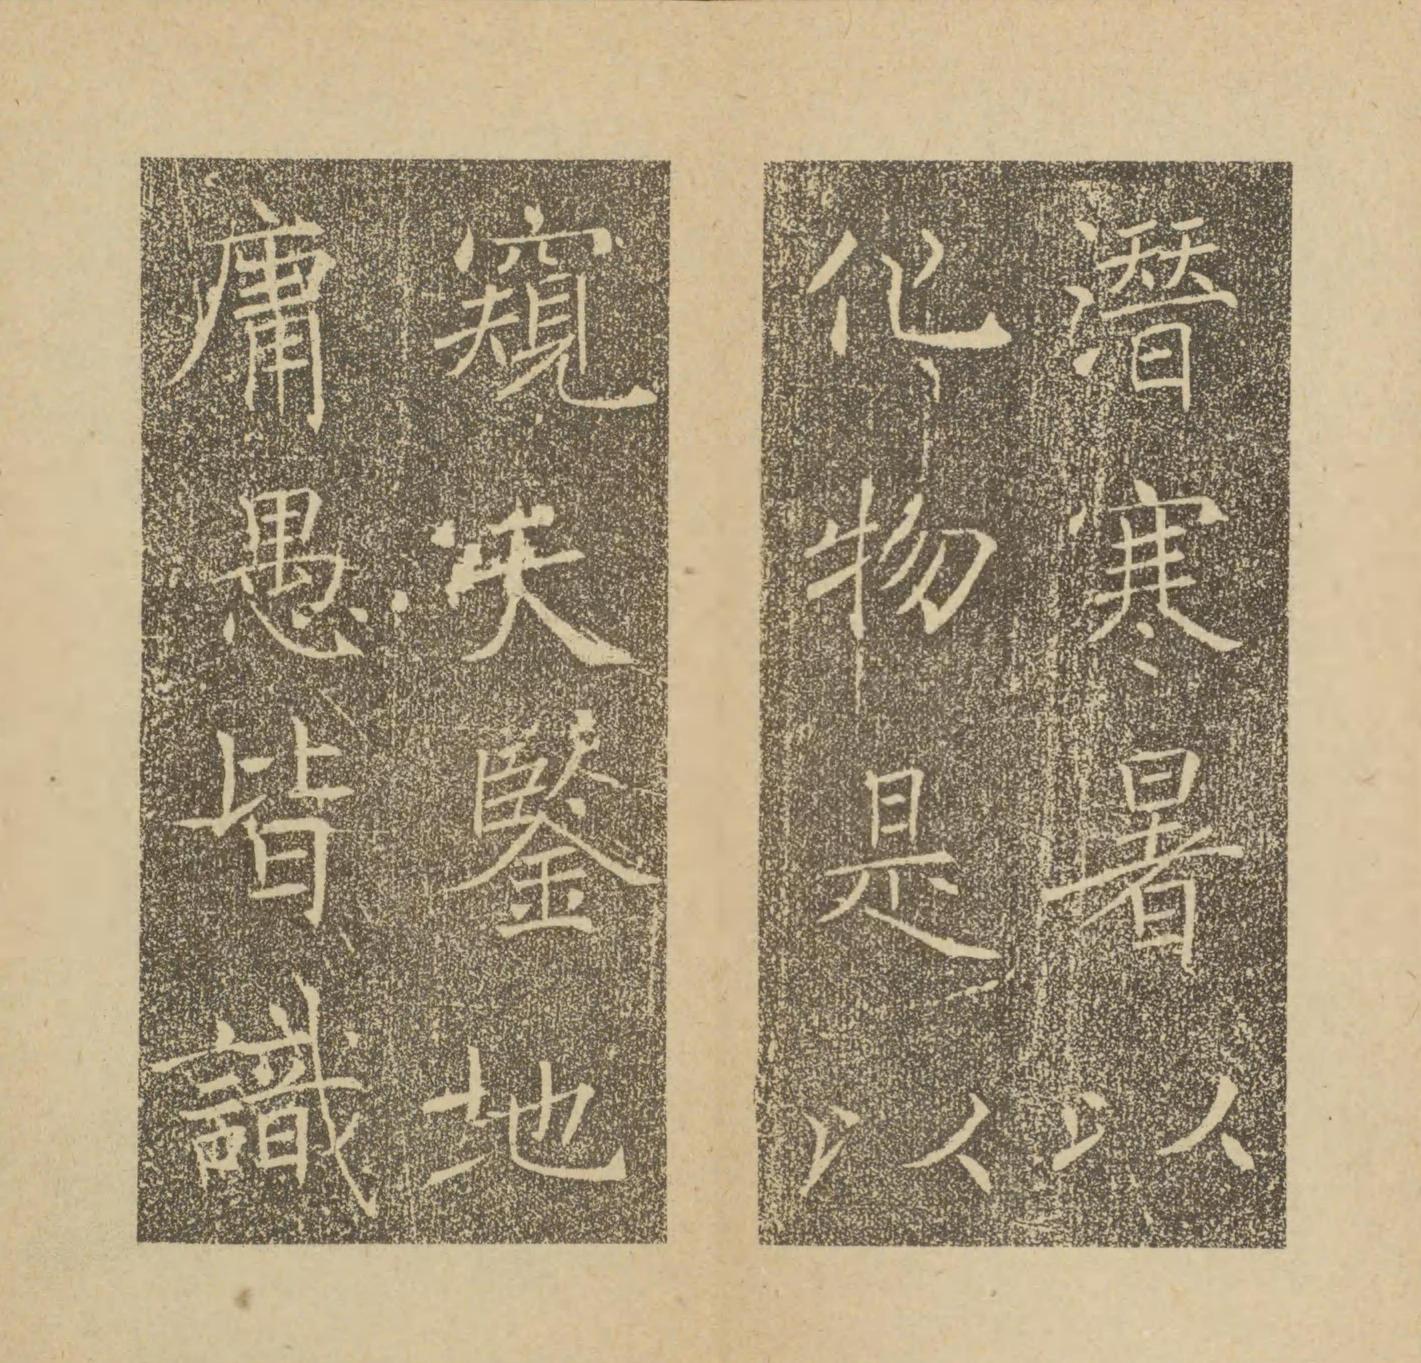 潛寒暑以
化物是以
窺天鑒地
庸愚皆識